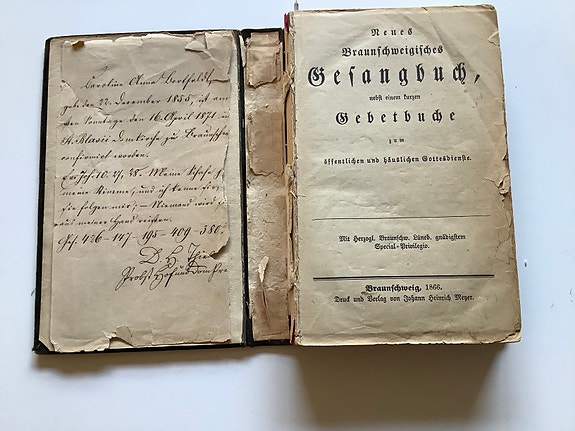 Caroline Anna Bertholdt
geb: den 22. December 1855, ist am
ten Sonntage den 16. April 1871 in
St. Blasii Domkirche zu Braunschw
confirmirt worden.
Ev. Joh. 10. 27, 28. Meine Schafe
meine Stimme, und ich kenne sie,
sie folgen mir; – Niemand wird
aus meiner Hand reißen.
Ges. 426 – 147 – 195 – 409 – 380.
D. H. Thiele
Probst, Hof und Dom
Neues
Braunschweigisches
Gesangbuch,
nebst einem kurzen
Gebetbuche
zum
öffentlichen und häuslichen Gottesdienste.
Mit Herzogl. Braunschw. Lüneb. gnädigstem
Special-Privilegio.
Braunschweig, 1866.
Druck und Verlag von Johann Heinrich Meyer.